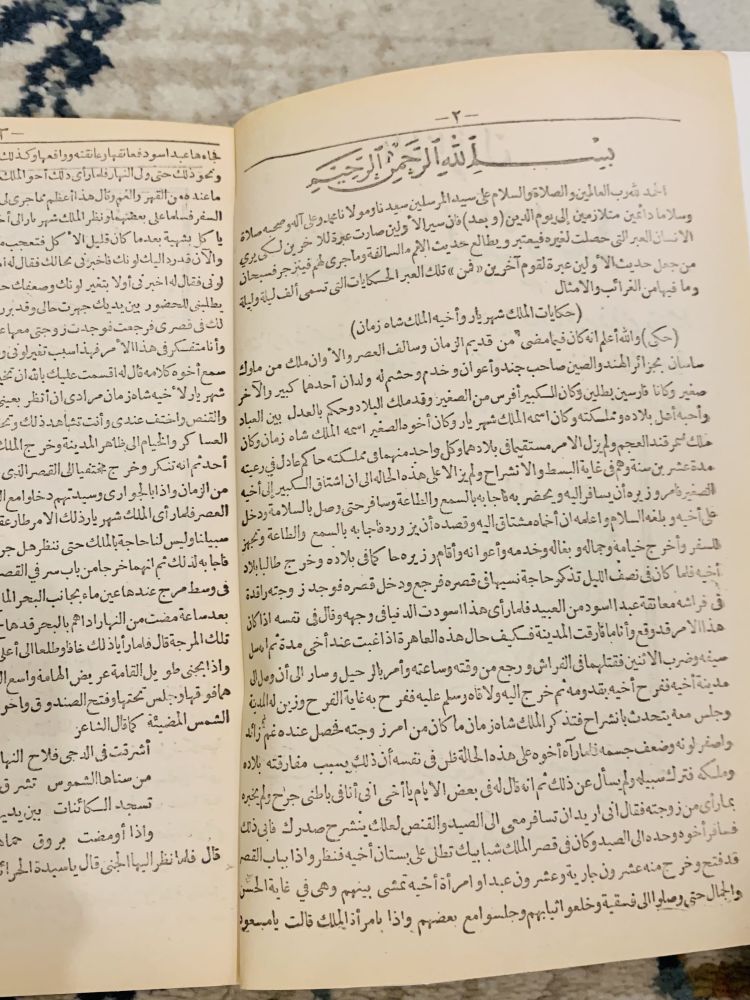 ‎-٢-
بسم الله الرحمن الرحيم
الحمد لله رب العالمين والصلاة والسلام على سيد المرسلين سيدنا ومولانا محمد وعلى آله وصحبه صلاة
وسلاما دائمين متلازمين إلى يوم الدين (وبعد) فان سير الأولين صارت عبرة للآخرين لكى يري
الانسان العبر التى حصلت لغيره فيعتبر ويطالع حديث الامم السالفة وما جرى لهم فينزجر فسبحان
من جعل حديث الأولين عبرة لقوم آخرين «فمن» تلك العبر الحكايات التى تسمى ألف ليلة وليلة
وما فيها من الغرائب والامثال
(حكايات الملك شهريار وأخيه الملك شاه زمان)
(حكى) والله أعلم انه كان فيما مضى من قديم الزمان وسالف العصر والأوان ملك من ملوك
ساسان بجزائر الهند والصين صاحب جند وأعوان وخدم وحشم له ولدان أحدهما كبير والآخر
صغير وكانا فارسين بطلين وكان الكبير أفرس من الصغير وقد ملك البلاد وحكم بالعدل بين العباد
وأحبه أهل بلاده ومملكته وكان اسمه الملك شهريار وكان أخوه الصغير اسمه الملك شاه زمان وكان
ملك سمرقند العجم ولم يزل الامر مستقيما فى بلادهما وكل واحد منهما فى مملكته حاكم عادل فى رعيته
مدة عشرين سنة وهم فى غاية البسط والانشراح ولم يزالا على هذه الحالة الى ان اشتاق الكبير إلى أخيه
الصغير فامر وزيره أن يسافر اليه ويحضر به فاجابه بالسمع والطاعة وسافر حتى وصل بالسلامة ودخل
على أخيه وبلغه السلام واعلمه ان أخاه مشتاق اليه وقصده أن يزوره فاجابه بالسمع والطاعة وتجهز
للسفر وأخرج خيامه وجماله وبغاله وخدمه وأعوانه وأقام وزيره حاكما فى بلاده وخرج طالبا بلاد
أخيه فلما كان فى نصف الليل تذكر حاجة نسيها فى قصره فرجع ودخل قصره فوجد زوجته راقدة
فى فراشه معانقة عبدا اسود من العبيد فلما رأى هذا اسودت الدنيا فى وجهه وقال فى نفسه اذا كان
هذا الامر قد وقع وأنا ما فارقت المدينة فكيف حال هذه العاهرة اذا غبت عند أخى مدة ثم انه سل
سيفه وضرب الاثنين فقتلهما فى الفراش ورجع من وقته وساعته وأمر بالرحيل وسار الى أن وصل الى
مدينة أخيه ففرح أخيه بقدومه ثم خرج اليه ولاقاه وسلم عليه ففرح به غاية الفرح وزين له المدينة
وجلس معه يتحدث بانشراح فتذكر الملك شاه زمان ما كان من امر زوجته فحصل عنده غم زائد
واصفر لونه وضعف جسمه فلما رآه أخوه على هذه الحالة ظن فى نفسه أن ذلك بسبب مفارقته بلاده
وملكه فترك سبيله ولم يسأل عن ذلك ثم انه قال له فى بعض الايام يا أخى انى أنا فى باطنى جرح ولم يخبره
بما رأى من زوجته فقال انى اريد ان تسافر معى الى الصيد والقنص لعلك ينشرح صدرك فابى ذلك
فسافر أخوه وحده الى الصيد وكان فى قصر الملك شبابيك تطل على بستان أخيه فنظر واذا بباب القصر
قد فتح وخرج منه عشرون جارية وعشرون عبدا وامرأة أخيه تمشى بينهم وهى فى غاية الحسن
والجمال حتى وصلوا الى فسقية وخلعوا ثيابهم وجلسوا مع بعضهم واذا بامرأة الملك قالت يا مسعود
‎٣-
فجاءها عبد اسود فعانقها وعانقته وواقعها وكذلك
ونحو ذلك حتى ولى النهار فلما رأى ذلك أخو الملك
ما عنده من القهر والغم وقال هذا أعظم مما جرى ل
السفر فسلما على بعضهما ونظر الملك شهريار الى أخ
يأكل بشهية بعد ما كان قليل الأكل فتعجب م
والآن قد رد اليك لونك فاخبرنى بحالك فقال له ا
لونى فقال له اخبرنى أولا بتغير لونك وضعفك ح
يطلبنى للحضور بين يديك جهزت حالى وقد برز
لك فى قصرى فرجعت فوجدت زوجتى معها ع
وأنا متفكر فى هذا الأمر فهذا سبب تغير لونى و
سمع أخوه كلامه قال له اقسمت عليك بالله ان تخب
شهريار لأخيه شاه زمان مرادى ان أنظر بعينى
والقنص واختف عندى وأنت تشاهد ذلك وتح
العساكر والخيام الى ظاهر المدينة وخرج الملك
أحد ثم انه تنكر وخرج مختفيا الى القصر الذى
من الزمان واذا بالجوارى وسيدتهم دخلوا مع ال
العصر فلما رأى الملك شهريار ذلك الامر طار عق
سبيلنا وليس لنا حاجة بالملك حتى ننظر هل جر
فاجابه لذلك ثم انهما خرجا من باب سر فى القص
فى وسط مرج عندها عين ماء بجانب البحر الما
بعد ساعة مضت من النهار اذا هم بالبحر قد هاج
تلك المرجة قال فلما رأيا ذلك خافا وطلعا الى أعلى
واذا بجنى طويل القامة عريض الهامة واسع ال
هما فوقها وجلس تحتها وفتح الصندوق واخر
الشمس المضيئة كما قال الشاعر
أشرقت فى الدجى فلاح النها
من سناها الشموس تشرق
تسجد الكائنات بين يدي
واذا أومضت بروق حماه
قال فلما نظر اليها الجنى قال يا سيدة الحرائ